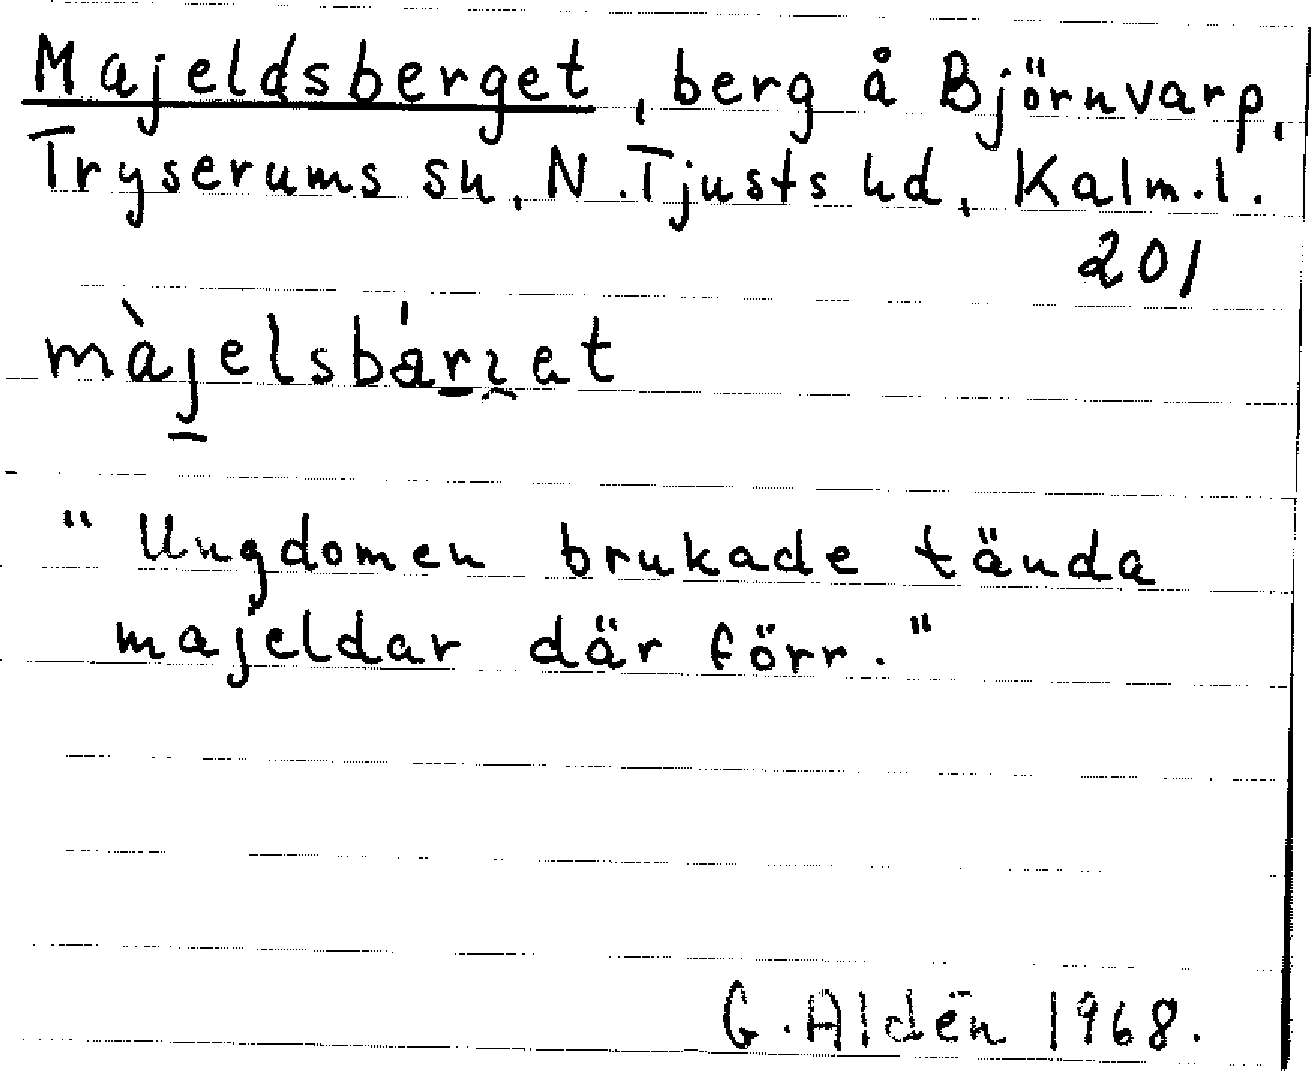 Majeldsberget, berg å Björnvarp,
Tryserums sn, N. Tjusts hd, Kalm. l.
201
màjelsbárɿet
"Ungdomen brukade tända
majeldar där förr."
G. Aldén 1968.